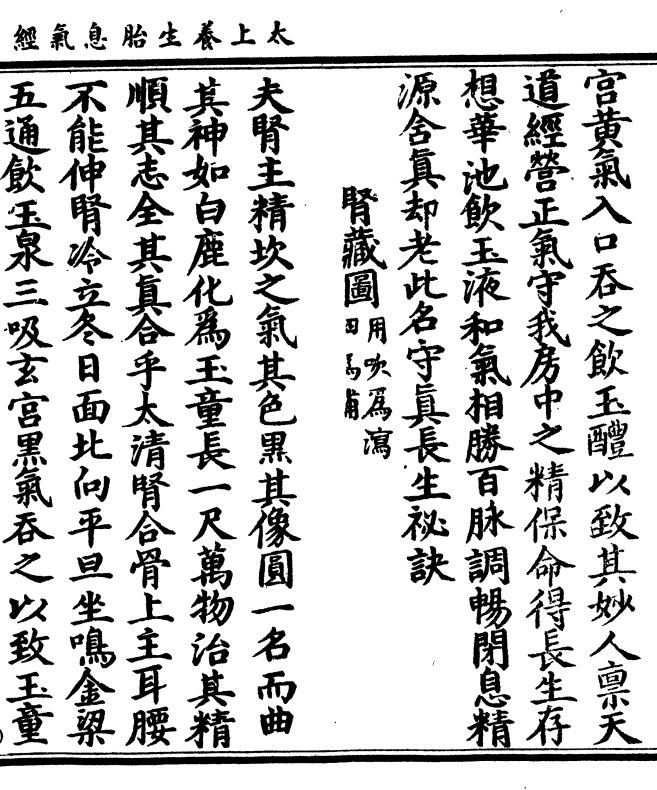 太上養生胎息氣經
宫黄氣入口吞之飲玉醴以致其妙人禀天
道經營正氣守我房中之精保命得長生存
想華池飲玉液和氣相勝百脉調暢閉息精
源舍真却老此名守真長生祕訣
腎藏圖用吹爲瀉
夫腎主精坎之氣其色黒其像圓一名而曲
其神如白鹿化爲玉童長一尺萬物治其精
順其志全其真合乎太清腎合骨上主耳腰
不能伸腎冷立冬日面北向平旦坐鳴金梁
五通飲玉泉三吸玄宫黒氣吞之以致玉童